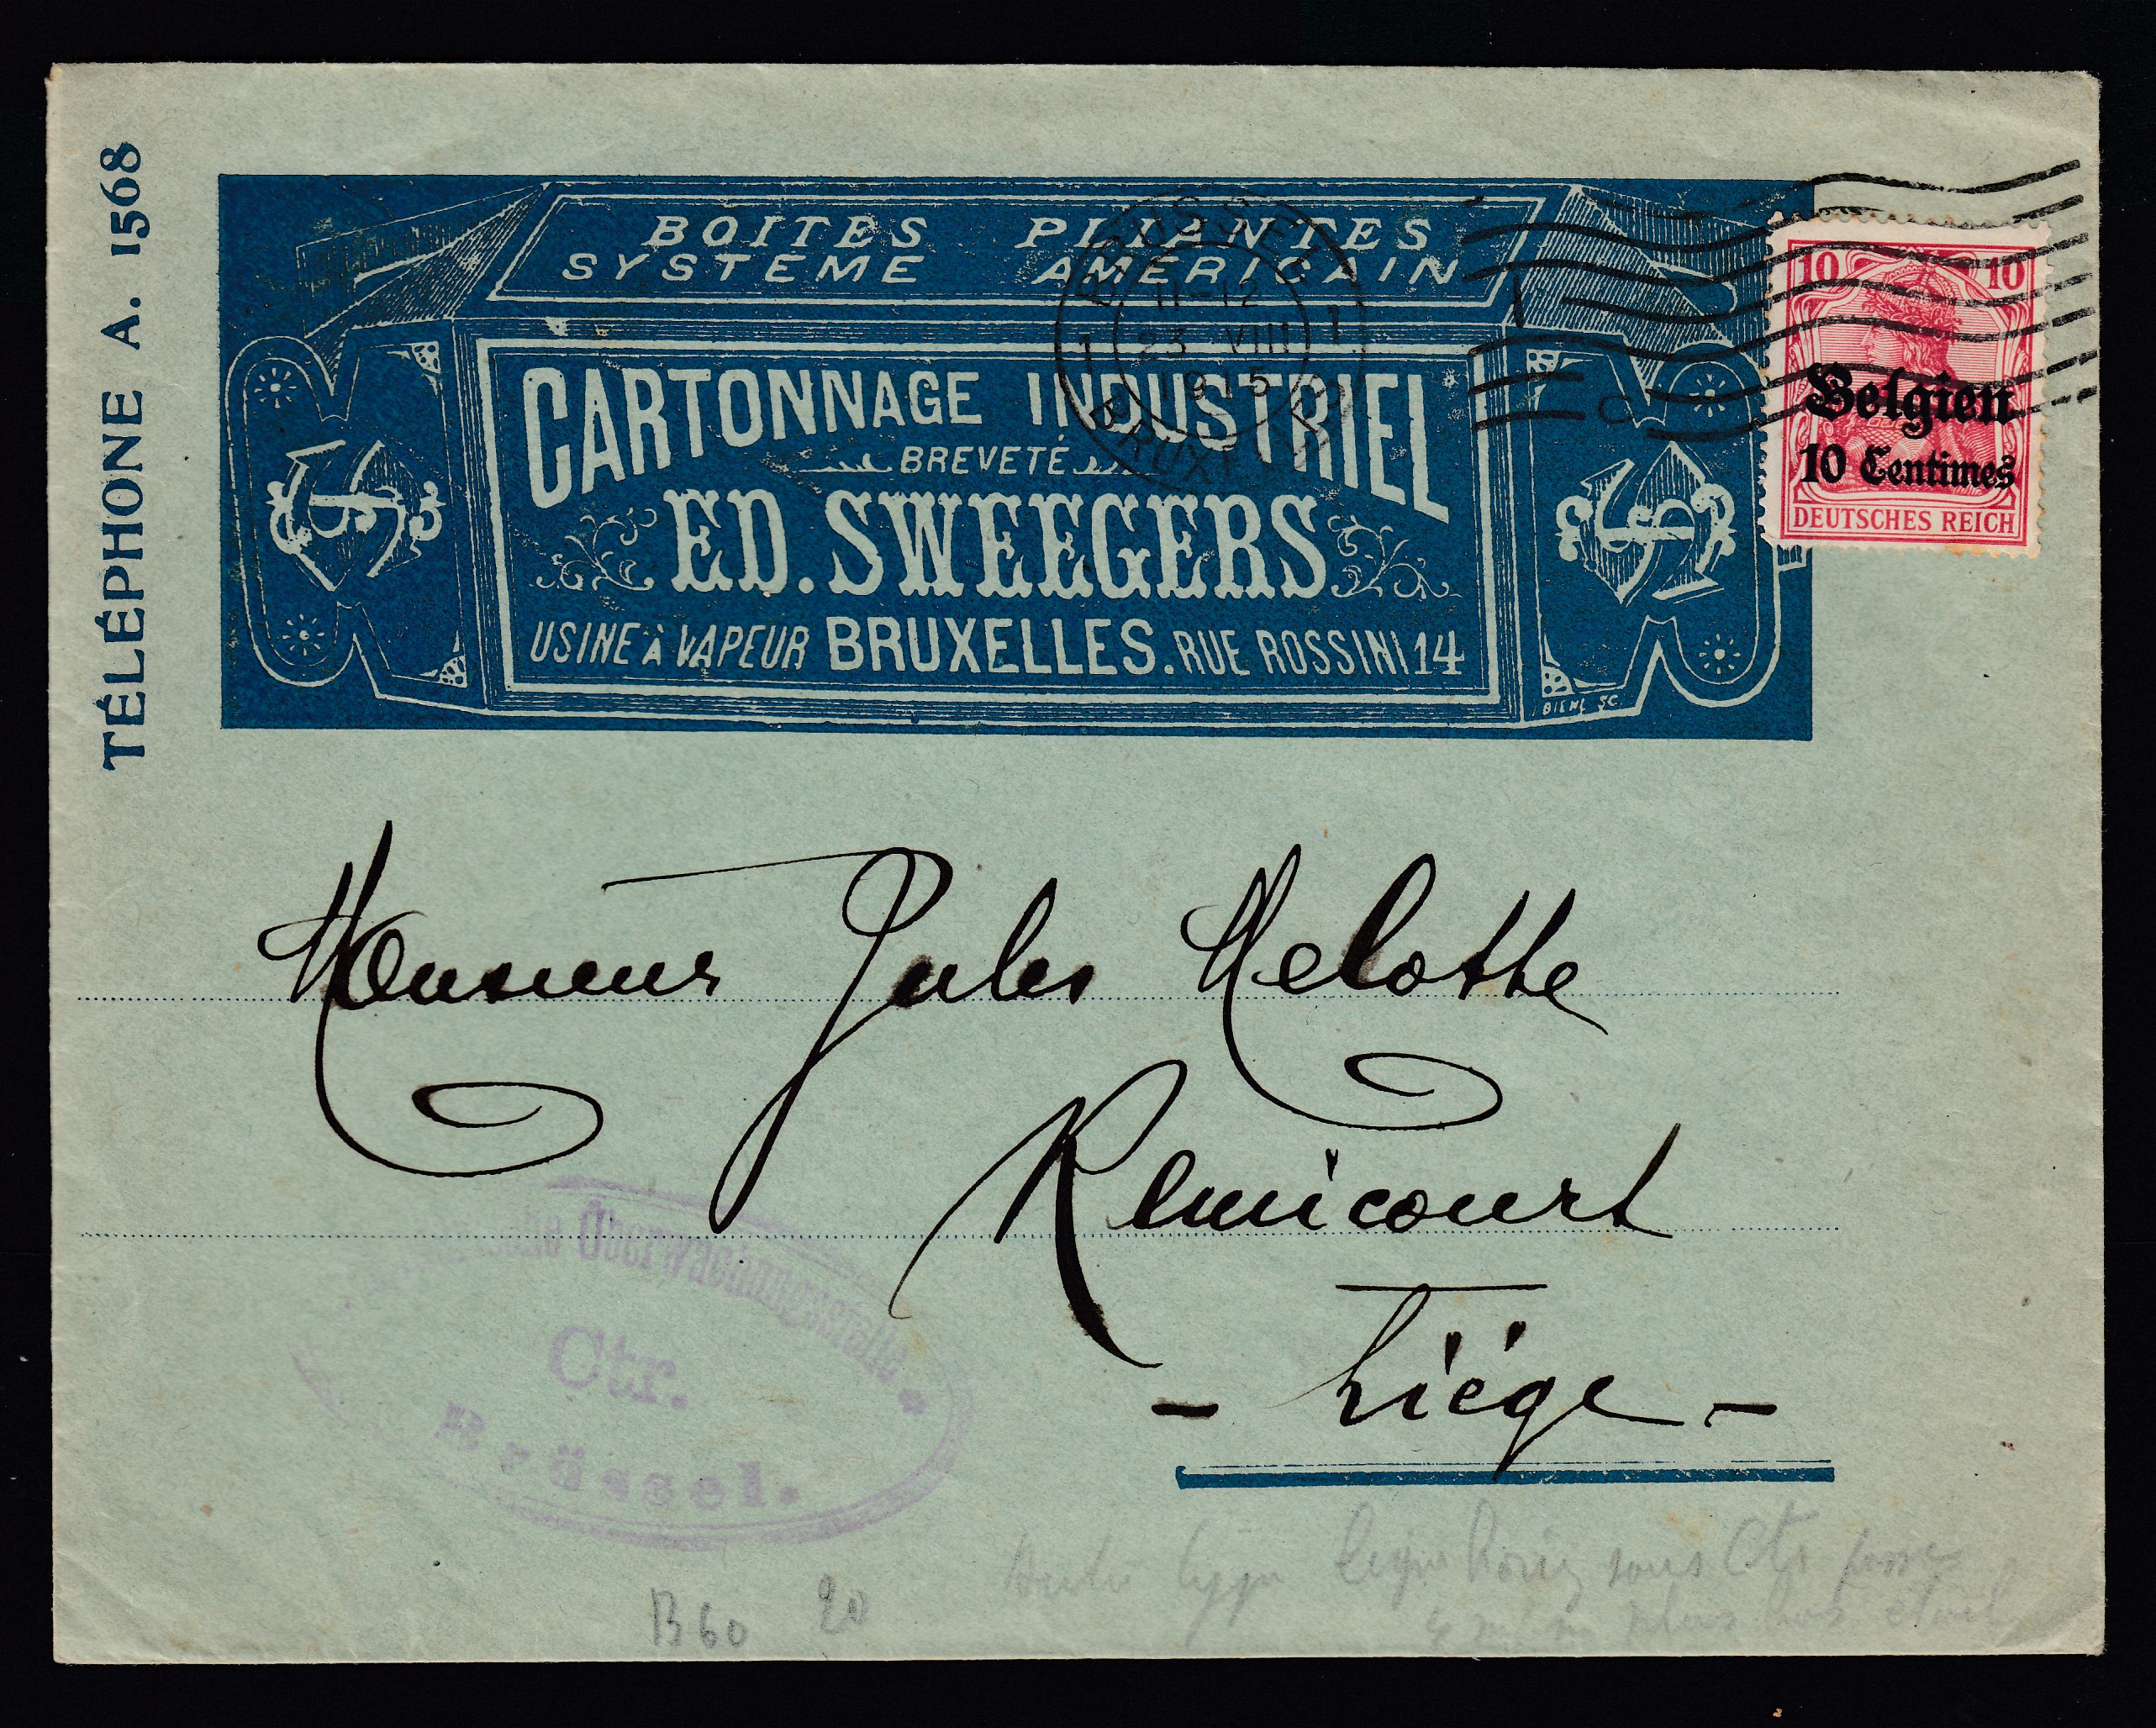 TÉLÉPHONE A. 1568
BOITES PLIANTES
SYSTÈME AMÉRICAIN
CARTONNAGE INDUSTRIEL
BREVETÉ
ED. SWEEGERS
USINE À VAPEUR BRUXELLES. RUE ROSSINI 14
BRÜSSEL
11-12
1 23 VIII 1
1915
BRUXELLES
10 10
Belgien
10 Centimes
DEUTSCHES REICH
Monsieur Jules Melotte
Remicourt
- Liége -
Überwachungsstelle
Ctr.
Brüssel.
B 60 20
sous Ctr